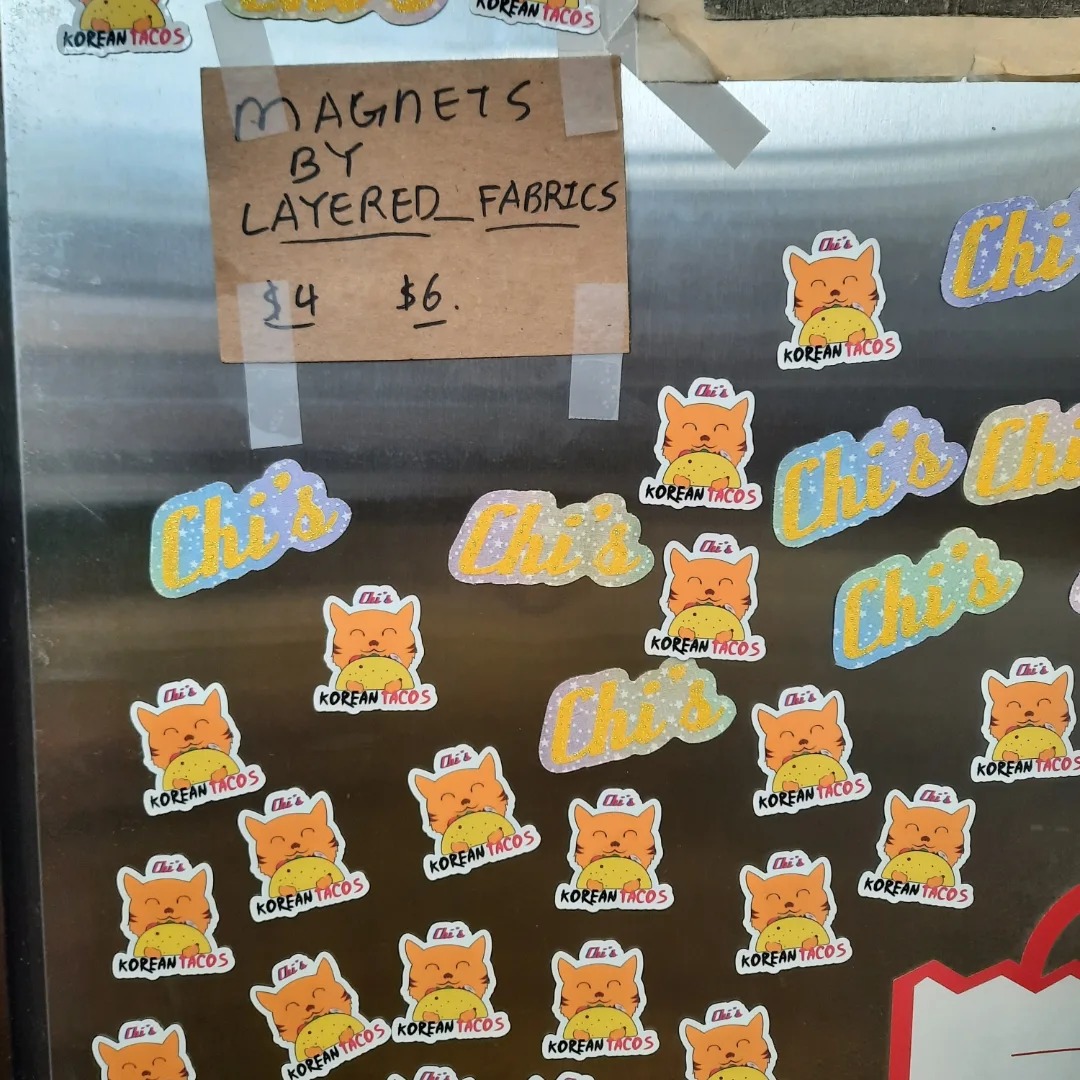 KOREAN TACOS
Chi's
KOREAN TACOS
MAGNETS
BY
LAYERED_FABRICS
$4 $6.
Chi's
KOREAN TACOS
Chi
Chi's
KOREAN TACOS
Chi's
Chi
Chi's
Chi's
Chi's
KOREAN TACOS
Chi's
Chi's
KOREAN TACOS
Chi's
Chi's
KOREAN TACOS
Chi's
KOREAN TACOS
Chi's
KOREAN TACOS
Chi's
KOREAN TACOS
Chi's
KOREAN TACOS
Chi's
KOREAN TACOS
Chi's
KOREAN TACOS
Chi's
KOREAN TACOS
Chi's
KOREAN TACOS
Chi's
KOREAN TACOS
Chi's
KOREAN TACOS
Chi's
KOREAN TACOS
Chi's
Chi's
Chi's